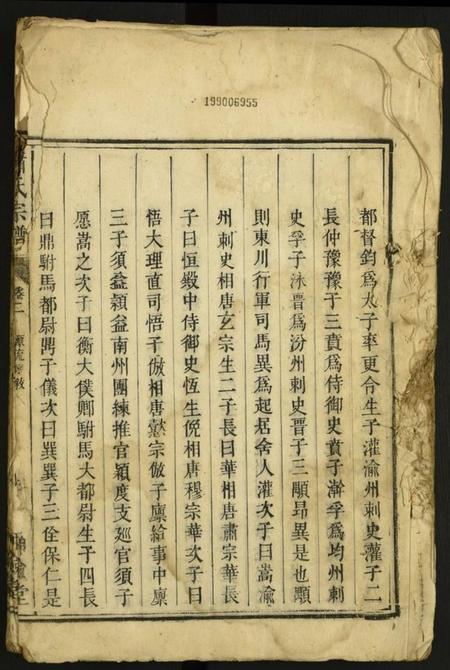 199006955
都督鈞為太子率更令生子灌渝州刺史灌子二
長仲豫豫子三賁為侍御史賁子澣孚為均州刺
史孚子洙晋為汾州刺史晋子三顒昂異是也顒
則東川行軍司馬異為起居舍人灌次子曰嵩渝
州刺史相唐玄宗生二子長曰華相唐肅宗華長
子曰恒縀中侍御史恆生俛相唐穆宗華次子曰
悟大理直司悟子倣相唐懿宗倣子廩給事中廩
三子須益穎益南州團練推官穎度支廵官須子
愿嵩之次子曰衡大僕卿駙馬大都尉生子四長
曰鼎駙馬都尉鼎子儀次曰巽巽子三佺保仁是
氏宗譜 卷二